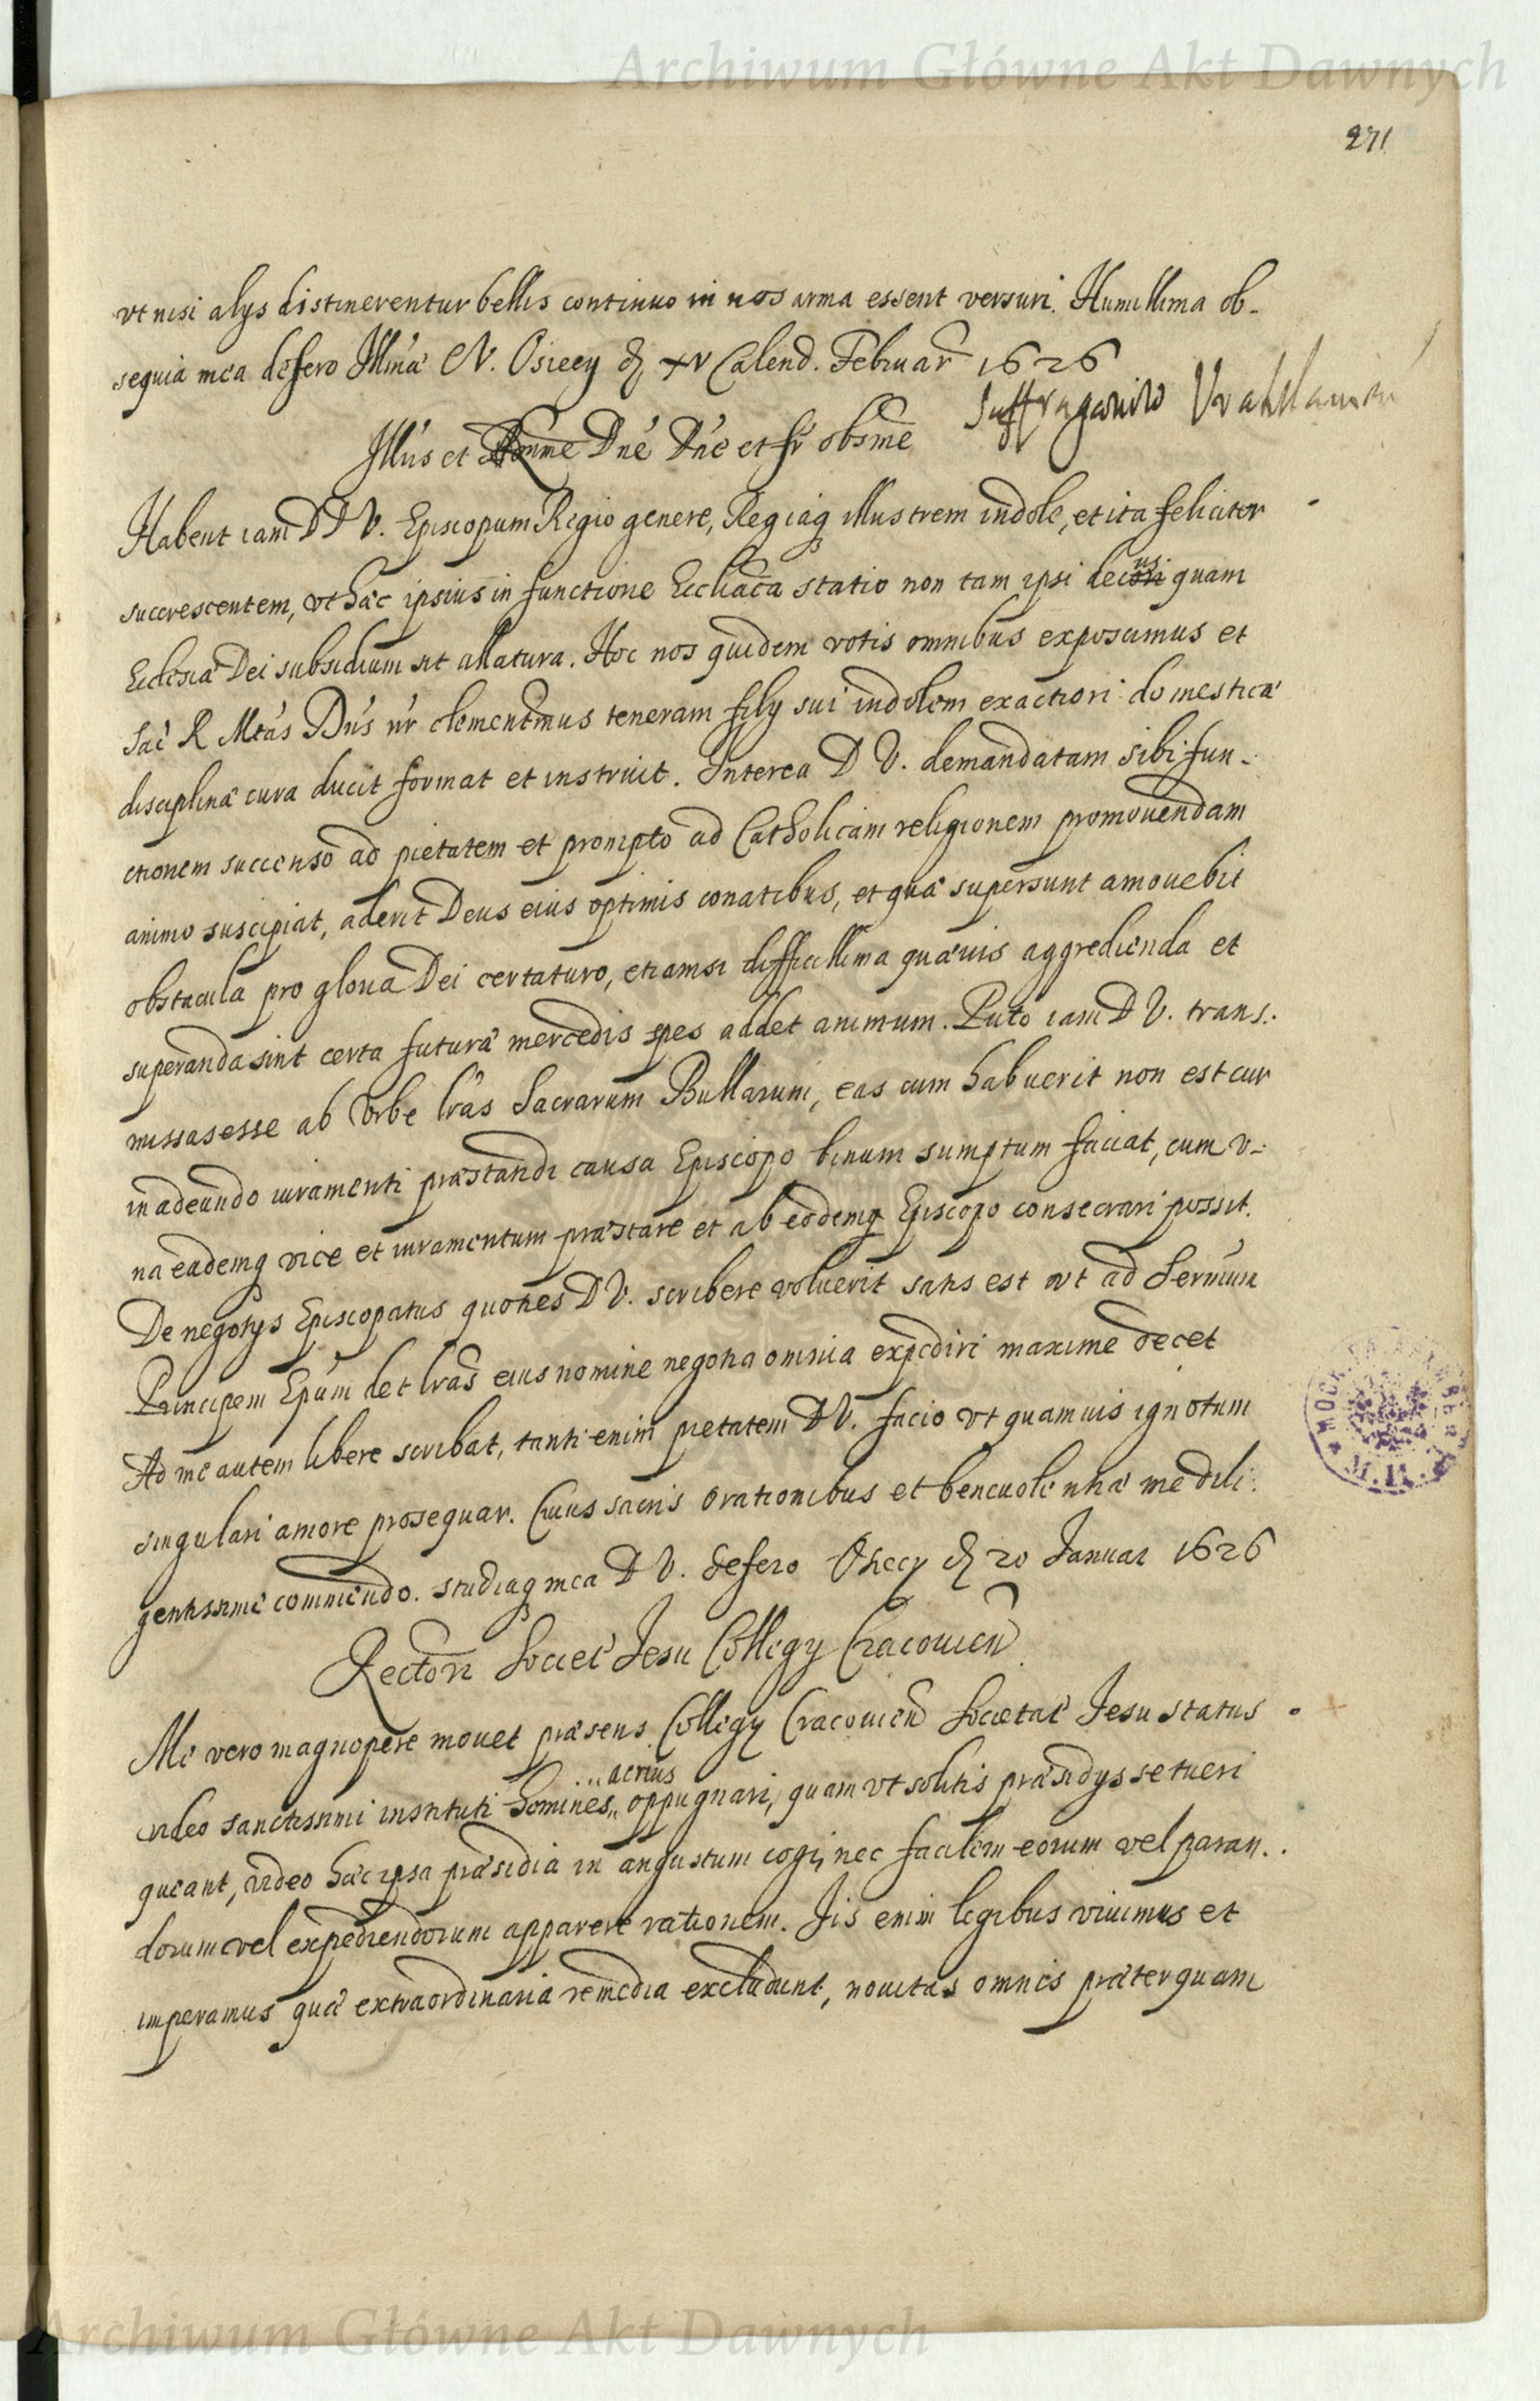 Archiwum Główne Akt Dawnych
271
vt nisi alys distinerentur bellis continuo in nos arma essent versuri. Humillima ob-
sequia mea defero Illmæ C V. Osiecy d xv Calend. Februar 1626
Suffraganeo Vratislauien
Illus et Rnme Dne Dne et fr obsme
Habent iam D D V. Episcopum Regio genere, Regiaq illustrem indole, et ita feliciter
succrescentem, vt hæc ipsius in functione Ecclíaca statio non tam ipsi decori usi quam
Eclesiæ Dei subsidium sit allatura. Hoc nos quidem votis omnibus exposcimus et
Sac R Mtas Dns nr clementmus teneram fily sui indolem exactiori domesticæ
disciplinæ cura ducit format et instruit. Interea D V. demandatam sibi fun-
ctionem succenso ad pietatem et prompto ad Catholicam religionem promouendam
animo suscipiat, aderit Deus eius optimis conatibus, et quæ supersunt amouebit
obstacula pro gloria Dei certaturo, etiamsi difficillima quæuis aggredienda et
superanda sint certa futuræ mercedis spes addet animum. Puto iam D V. trans.
missas esse ab Vrbe lras Sacrarum Bullarum, eas cum habuerit non est cur
in adeundo iuramenti præstandi causa Episcopo binum sumptum faciat, cum v-
na eademq vice et iuramentum præstare et ab eodemq Episcopo consecrari possit.
De negotys Episcopatus quoties D V. scribere voluerit satis est vt ad Sermum
Principem Epum det lras eius nomine negotia omnia expediri maxime decet
Ad me autem libere scribat, tanti enim pietatem D V. facio vt quamuis ignotum
singulari amore prosequar. Cuius sacris orationibus et beneuolentiæ me dili-
gentissime commendo. studiaq mea D V. defero Osiecy d 20 Januar 1626
Rectori Societ Jesu Collegy Cracouien
Me vero magnopere mouet præsens Collegy Cracouien Societat Jesu status
acrius
video sanctissimi instituti homines oppugnari, quam vt solitis præsidys se tueri
queant, video hæc ipsa præsidia in angustum cogi, nec facilem eorum vel paran.
dorum vel expediendorum apparere rationem. Iis enim legibus viuimus et
imperamus quæ extraordinaria remedia excludunt, nouitas omnis præterquam
Archiwum Główne Akt Dawnych